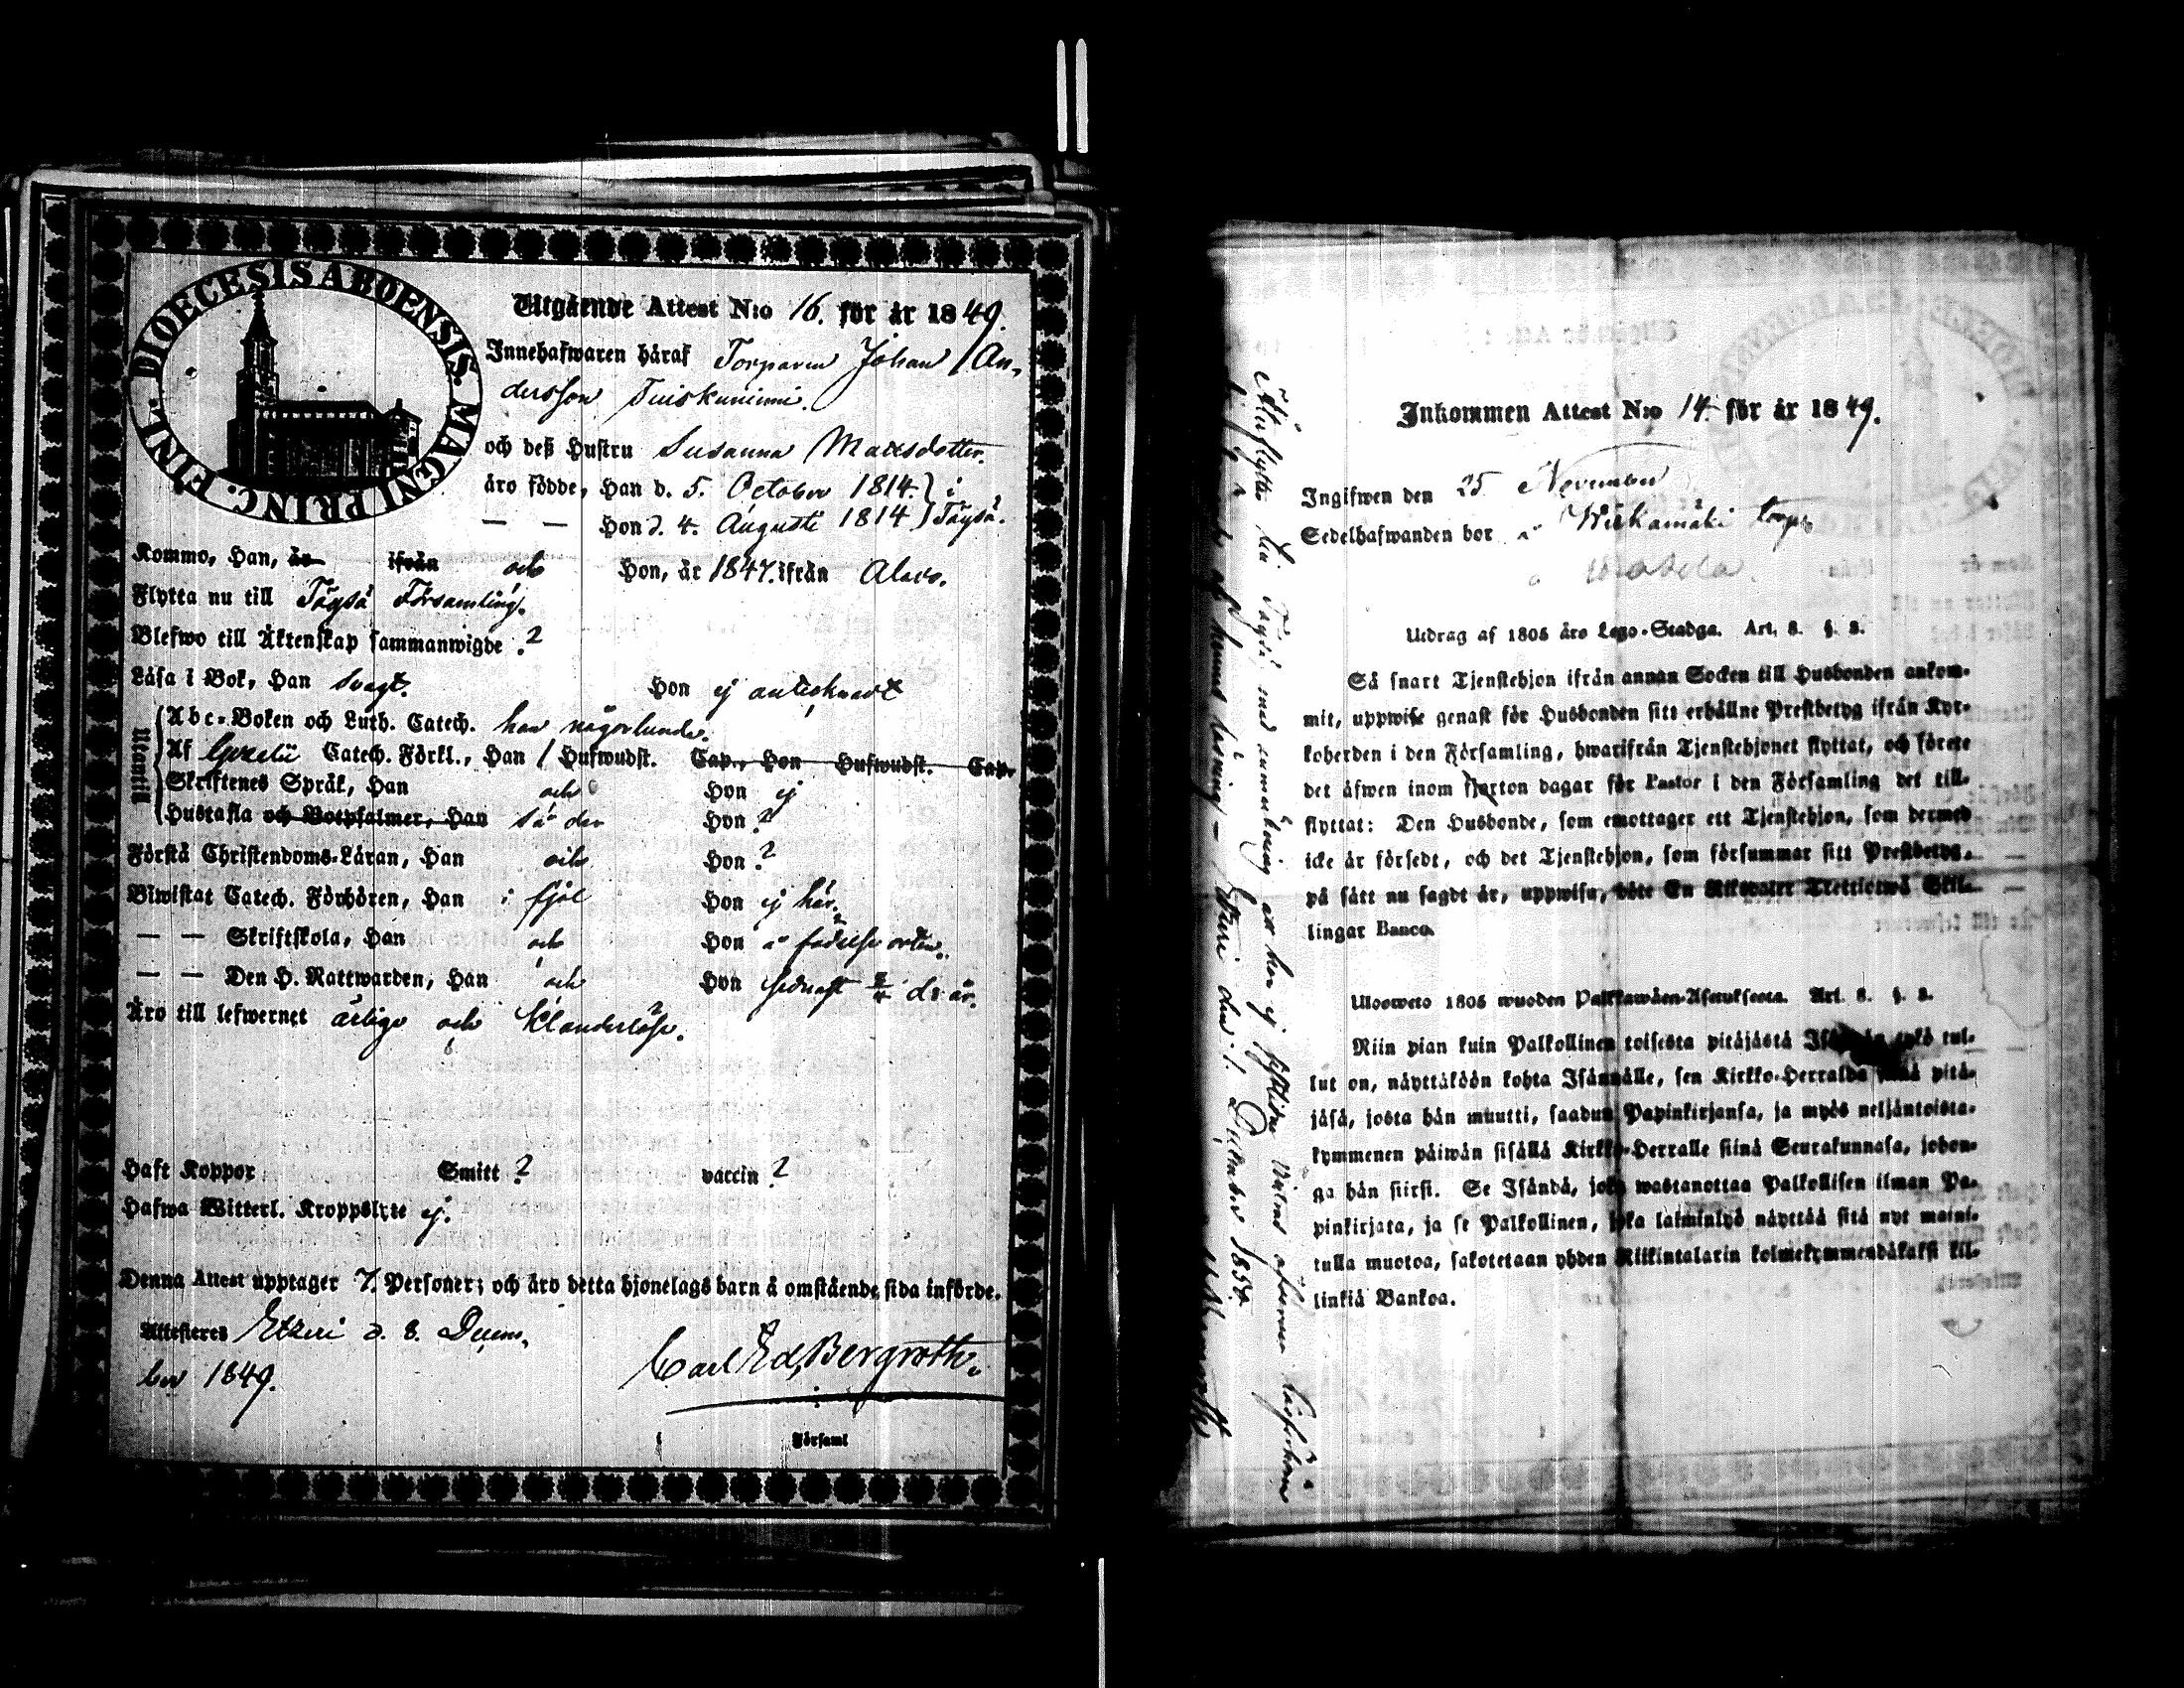 DIOECESIS ABOENSIS. MAGNI PRINC. FINL.
Utgående Attest N:o 16. för år 1849.
Innehafwaren häraf Torparen Johan An-
dersson Tuiskuniemi.
och deß Hustru Susanna Mattsdotter.
äro födde, Han d. 5. October 1814. } i
— — Hon d. 4. Augusti 1814 } Töysä.
Kommo, Han, år ifrån och Hon, år 1847. ifrån Alavo.
Flytta nu till Töysä Församling.
Blefwo till Äktenskap sammanwigde ?
Läsa i Bok, Han svagt. Hon ej antecknadt
Utantill
Abc-Boken och Luth. Catech. han någorlunda.
Af Catech. Förkl., Han 1 Hufwudst. Cap., Hon Hufwudst. Cap.
Skriftenes Språk, Han och Hon ej
Hustafla och Botpsalmer, Han Hon ?
Förstå Christendoms-Läran, Han Hon ?
Biwistat Catech. Förhören, Han i fjol Hon ej här.
— — Skriftskola, Han och Hon å födelse orten.
— — Den H. Nattwarden, Han och Hon sednast d. år.
Äro till lefwernet ärliga och Klanderlösa.
Haft Koppor Smitt ? vaccin ?
Hafwa Witterl. Kroppslyte ej.
Denna Attest upptager 7. Personer; och äro detta hjonelags barn å omstående sida införde.
Attesteres Etzeri d. 8. Decem-
ber 1849.
Carl Ed. Bergroth.
Församl
Inkommen Attest N:o 14 för år 1849.
Ingifwen den 25 November
Sedelhafwanden bor å torp
Utdrag af 1805 års Lego-Stadga. Art. 8. §. 2.
Så snart Tjenstehjon ifrån annan Socken till Husbonden ankom-
mit, uppwise genast för Husbonden sitt erhållne Prestbetyg ifrån Kyr-
koherden i den Församling, hwarifrån Tjenstehjonet flyttat, och förete
det äfwen inom fjorton dagar för Pastor i den Församling det till-
flyttat: Den Husbonde, som emottager ett Tjenstehjon, som dermed
icke är försedt, och det Tjenstehjon, som försummar sitt Prestbetyg,
på sätt nu sagdt är, uppwisa, böte En Riksdaler Trettiotwå Skil-
lingar Banco.
Ulosweto 1805 wuoden Palkkawäen-Asetuksesta. Art. 8. §. 2.
Niin pian kuin Palkollinen toisesta pitäjästä tul-
lut on, näyttäköön kohta Isännälle, sen Kirkko-Herralda siinä pitä-
jäsä, josta hän muutti, saadun Papinkirjansa, ja myös neljäntoista-
kymmenen päiwän sisällä Kirkko-Herralle siinä Seurakunnasa, johon-
ga hän siirsi. Se Isändä, joka wastanottaa Palkollisen ilman Pa-
pinkirjata, ja se Palkollinen, joka laiminlyö näyttää sitä nyt maini-
tulla muotoa, sakotetaan yhden Riikintalarin kolmekymmendäkaksi kil-
linkiä Bankoa.